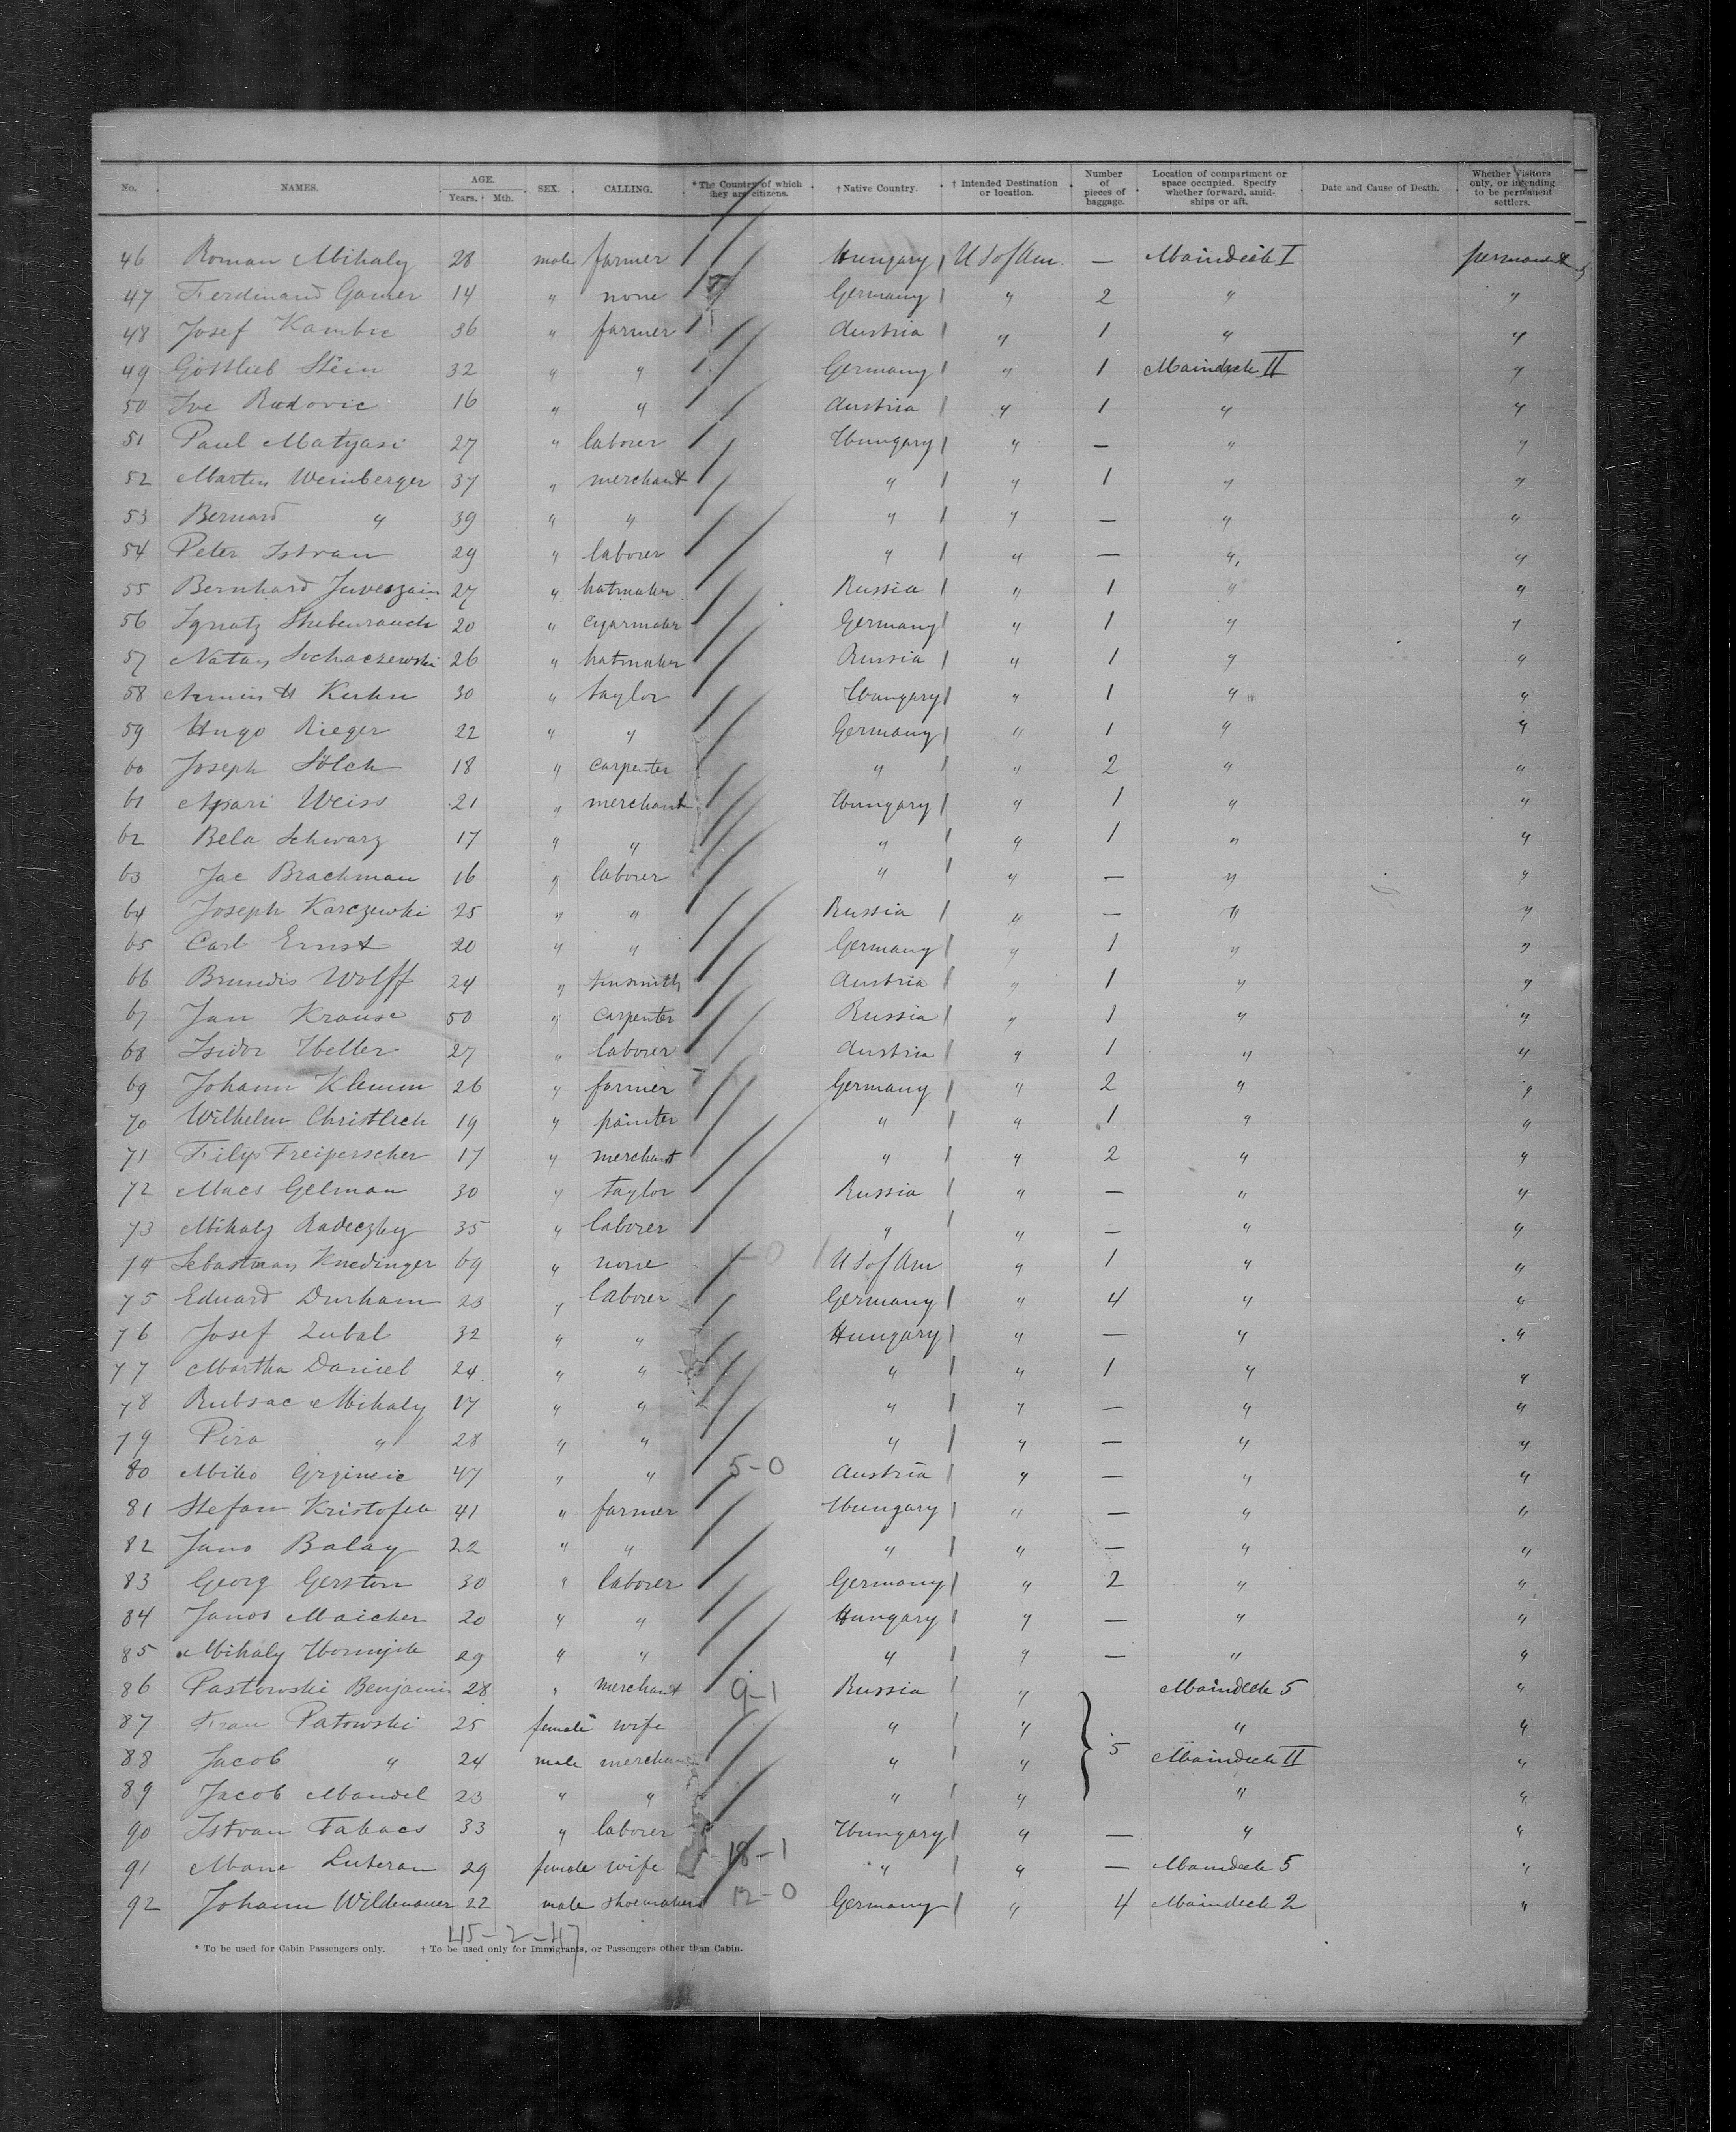 No. NAMES. AGE. Years. Mth. SEX. CALLING. *The Country of which they are citizens. †Native Country. †Intended Destination or location. Number of pieces of baggage. Location of compartment or space occupied. Specify whether forward, amidships or aft. Date and Cause of Death. Whether visitors only, or intending to be permanent settlers.
46 Roman Mihaly 28 male farmer Hungary U S of Am. — Maindeck I
47 Ferdinand 14 " none Germany " 2 " "
48 Josef Kambic 36 " farmer Austria " 1 " "
49 Gottlieb Stein 32 " " Germany " 1 Maindeck II "
50 Ive Radovic 16 " " Austria " 1 " "
51 Paul Matyasi 27 " laborer Hungary " — " "
52 Martin Weinberger 37 " merchant " " 1 " "
53 Bernard " 39 " " " " — " "
54 Peter Istvan 29 " laborer " " — " "
55 Bernhard 27 " hatmaker Russia " 1 " "
56 Ignatz 20 " cigarmaker Germany " 1 " "
57 Natan Sochaczewski 26 " hatmaker Russia " 1 " "
58 30 " taylor Hungary " 1 " "
59 Hugo Rieger 22 " " Germany " 1 " "
60 Joseph Sölch 18 " carpenter " " 2 " "
61 Weiss 21 " merchant Hungary " 1 " "
62 Bela Schwarz 17 " " " " 1 " "
63 Jac Brachman 16 " laborer " " — " "
64 Joseph Karczewski 25 " " Russia " — " "
65 Carl Ernst 20 " " Germany " 1 " "
66 Wolff 24 " tinsmith Austria " 1 " "
67 Jan Krause 50 " carpenter Russia " 1 " "
68 Isidor Heller 27 " laborer Austria " 1 " "
69 Johann Klemm 26 " farmer Germany " 2 " "
70 Wilhelm Christlich 19 " painter " " 1 " "
71 Filip 17 " merchant " " 2 " "
72 Gelman 30 " taylor Russia " — " "
73 Mihaly Radeczky 35 " laborer " " — " "
74 Sebastman Knedinger 69 " none 1-0 U S of Am " 1 " "
75 Eduard Durham 23 " laborer Germany " 4 " "
76 Josef Zubal 32 " " Hungary " — " "
77 Martha Daniel 24 " " " " 1 " "
78 Rubsac Mihaly 17 " " " " — " "
79 Pira " 28 " " " " — " "
80 Miko 47 " " 5-0 Austria " — " "
81 Stefan 41 " farmer Hungary " — " "
82 Jano Balay 22 " " " " — " "
83 Georg Gerston 30 " laborer Germany " 2 " "
84 Janos Maicher 20 " " Hungary " — " "
85 Mihaly 29 " " " " — " "
86 Pastowski Benjamin 28 " merchant 9-1 Russia " Maindeck 5 "
87 Frau Patowski 25 female wife " " " "
88 Jacob " 24 male merchant " " 5 Maindeck II "
89 Jacob Mandel 23 " " " " " "
90 Istvan Takacs 33 " laborer Hungary " — " "
91 Luteran 29 female wife 18-1 " " — Maindeck 5 "
92 Johann Wildenauer 22 male shoemaker 12-0 Germany " 4 Maindeck 2 "
45-2-47
* To be used for Cabin Passengers only. † To be used only for Immigrants, or Passengers other than Cabin.